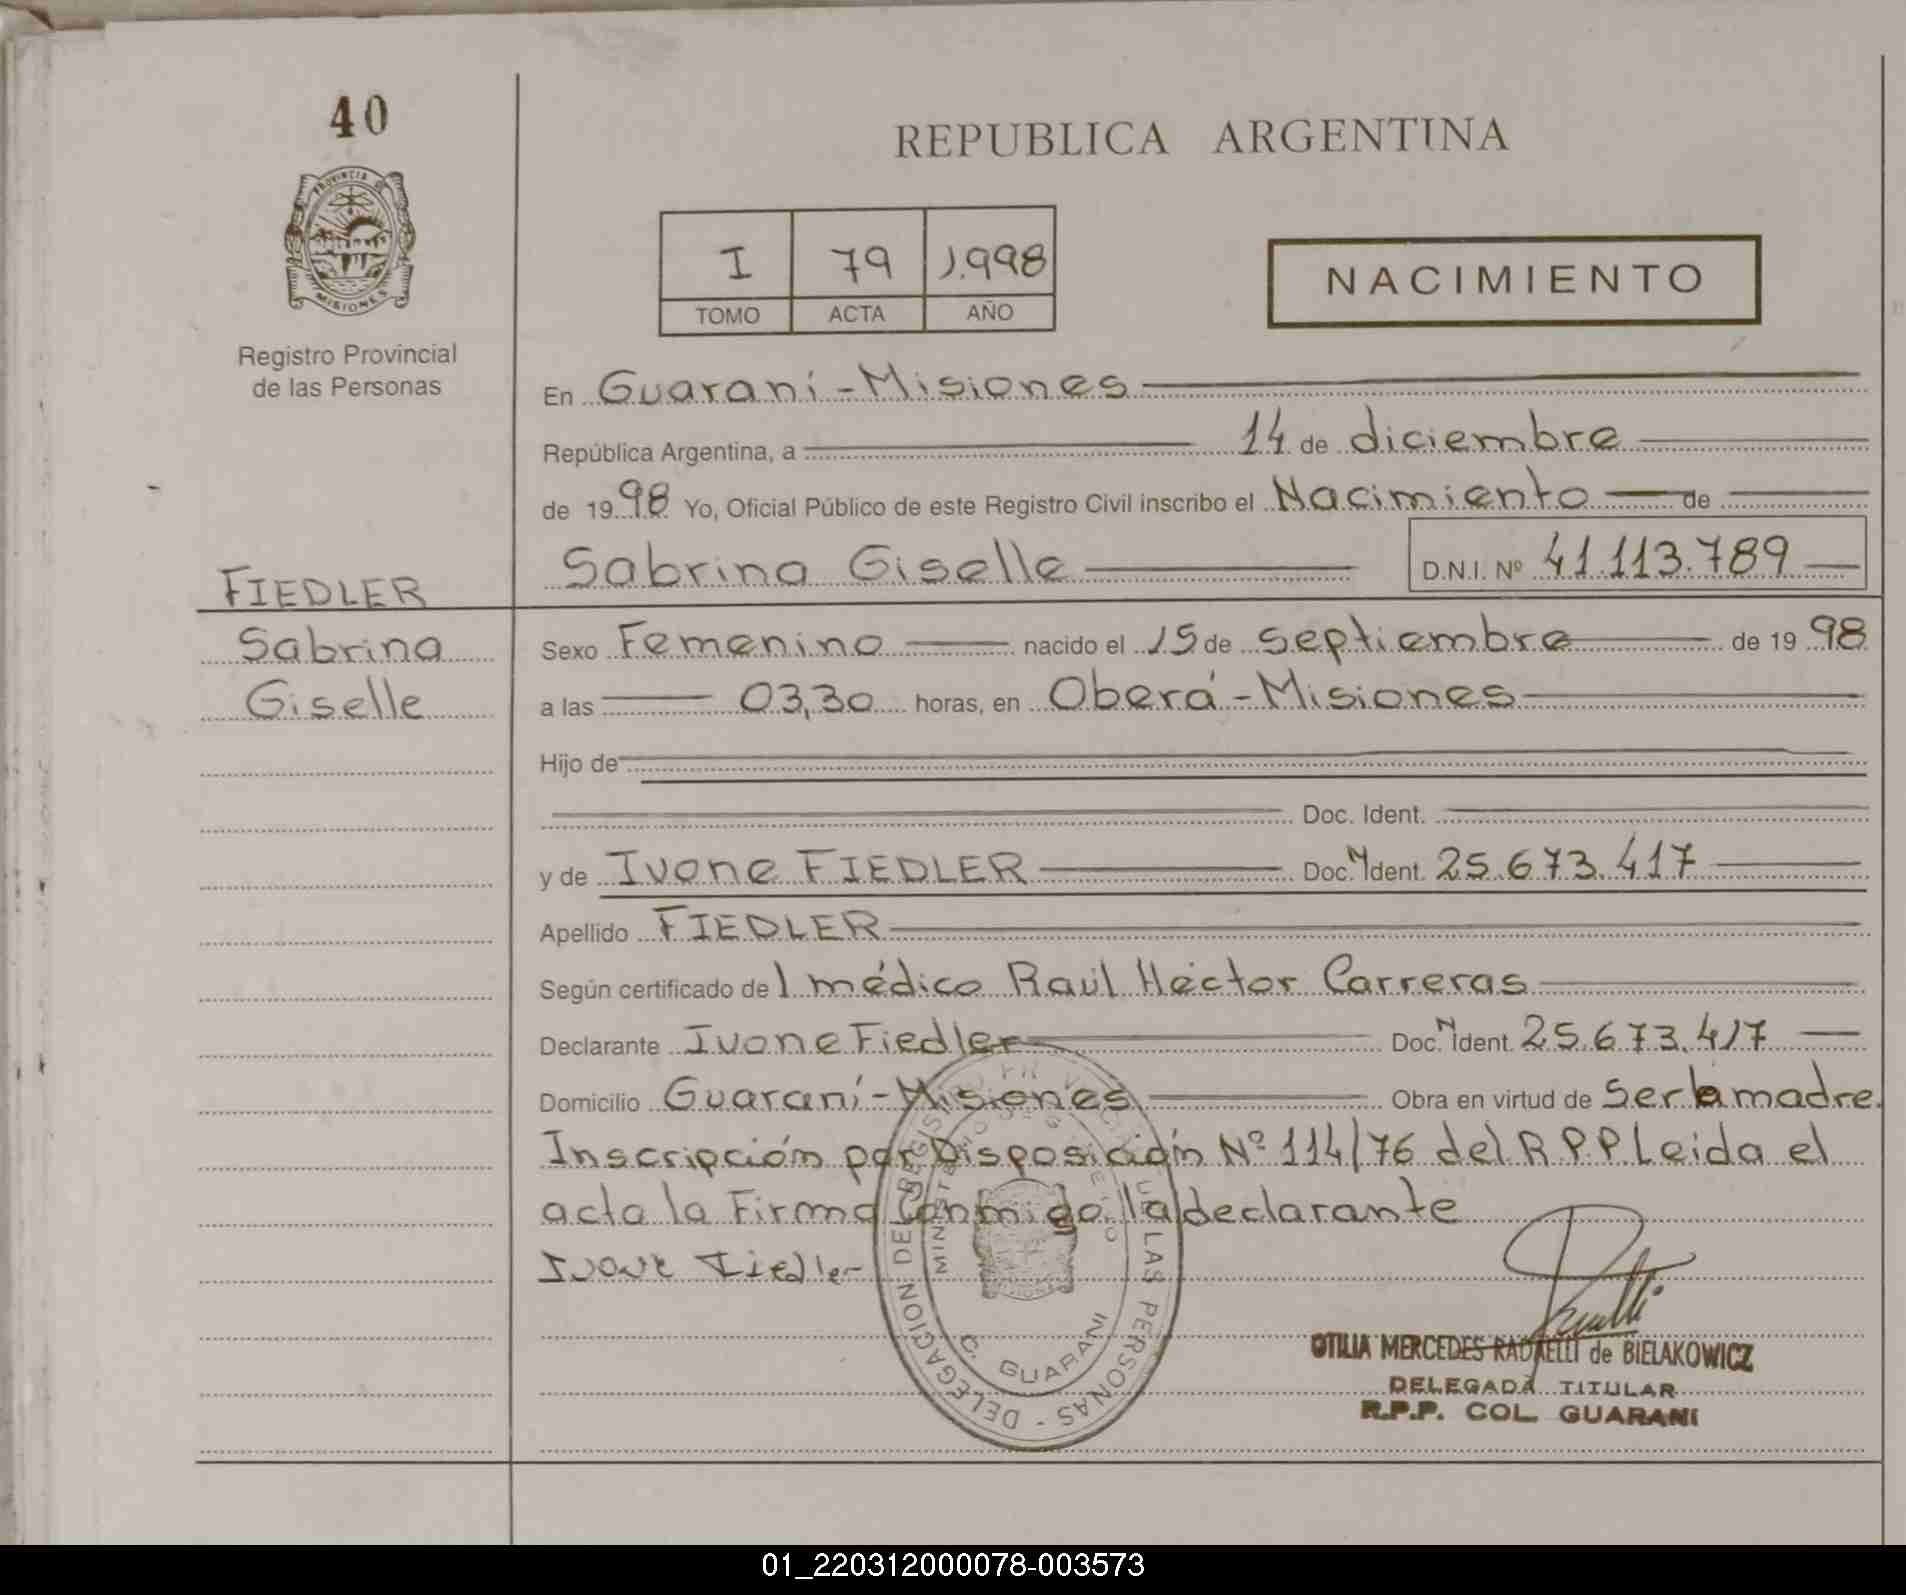 40
REPUBLICA ARGENTINA
PROVINCIA DE
MISIONES
I 79 1.998
TOMO ACTA AÑO
NACIMIENTO
Registro Provincial
de las Personas
En Guaraní-Misiones
República Argentina, a 14 de diciembre
de 1998 Yo, Oficial Público de este Registro Civil inscribo el Nacimiento de
Sabrina Giselle D.N.I. Nº 41.113.789
FIEDLER
Sabrina
Giselle
Sexo Femenino nacido el 15 de septiembre de 1998
a las 03,30 horas, en Oberá-Misiones
Hijo de
Doc. Ident.
y de Ivone FIEDLER Doc. N Ident. 25.673.417
Apellido FIEDLER
Según certificado del médico Raúl Héctor Carreras
Declarante Ivone Fiedler Doc. N Ident. 25.673.417
Domicilio Guaraní-Misiones Obra en virtud de ser la madre.
Inscripción por Disposición Nº 114/76 del R P P Leida el
acta la Firma Conmigo la declarante
Ivone Fiedler
DELEGACION DE REGISTRO PROVINCIAL DE LAS PERSONAS -
MINISTERIO DE GOBIERNO
C. GUARANI
OTILIA MERCEDES RADAELLI de BIELAKOWICZ
DELEGADA TITULAR
R.P.P. COL. GUARANI
01_220312000078-003573